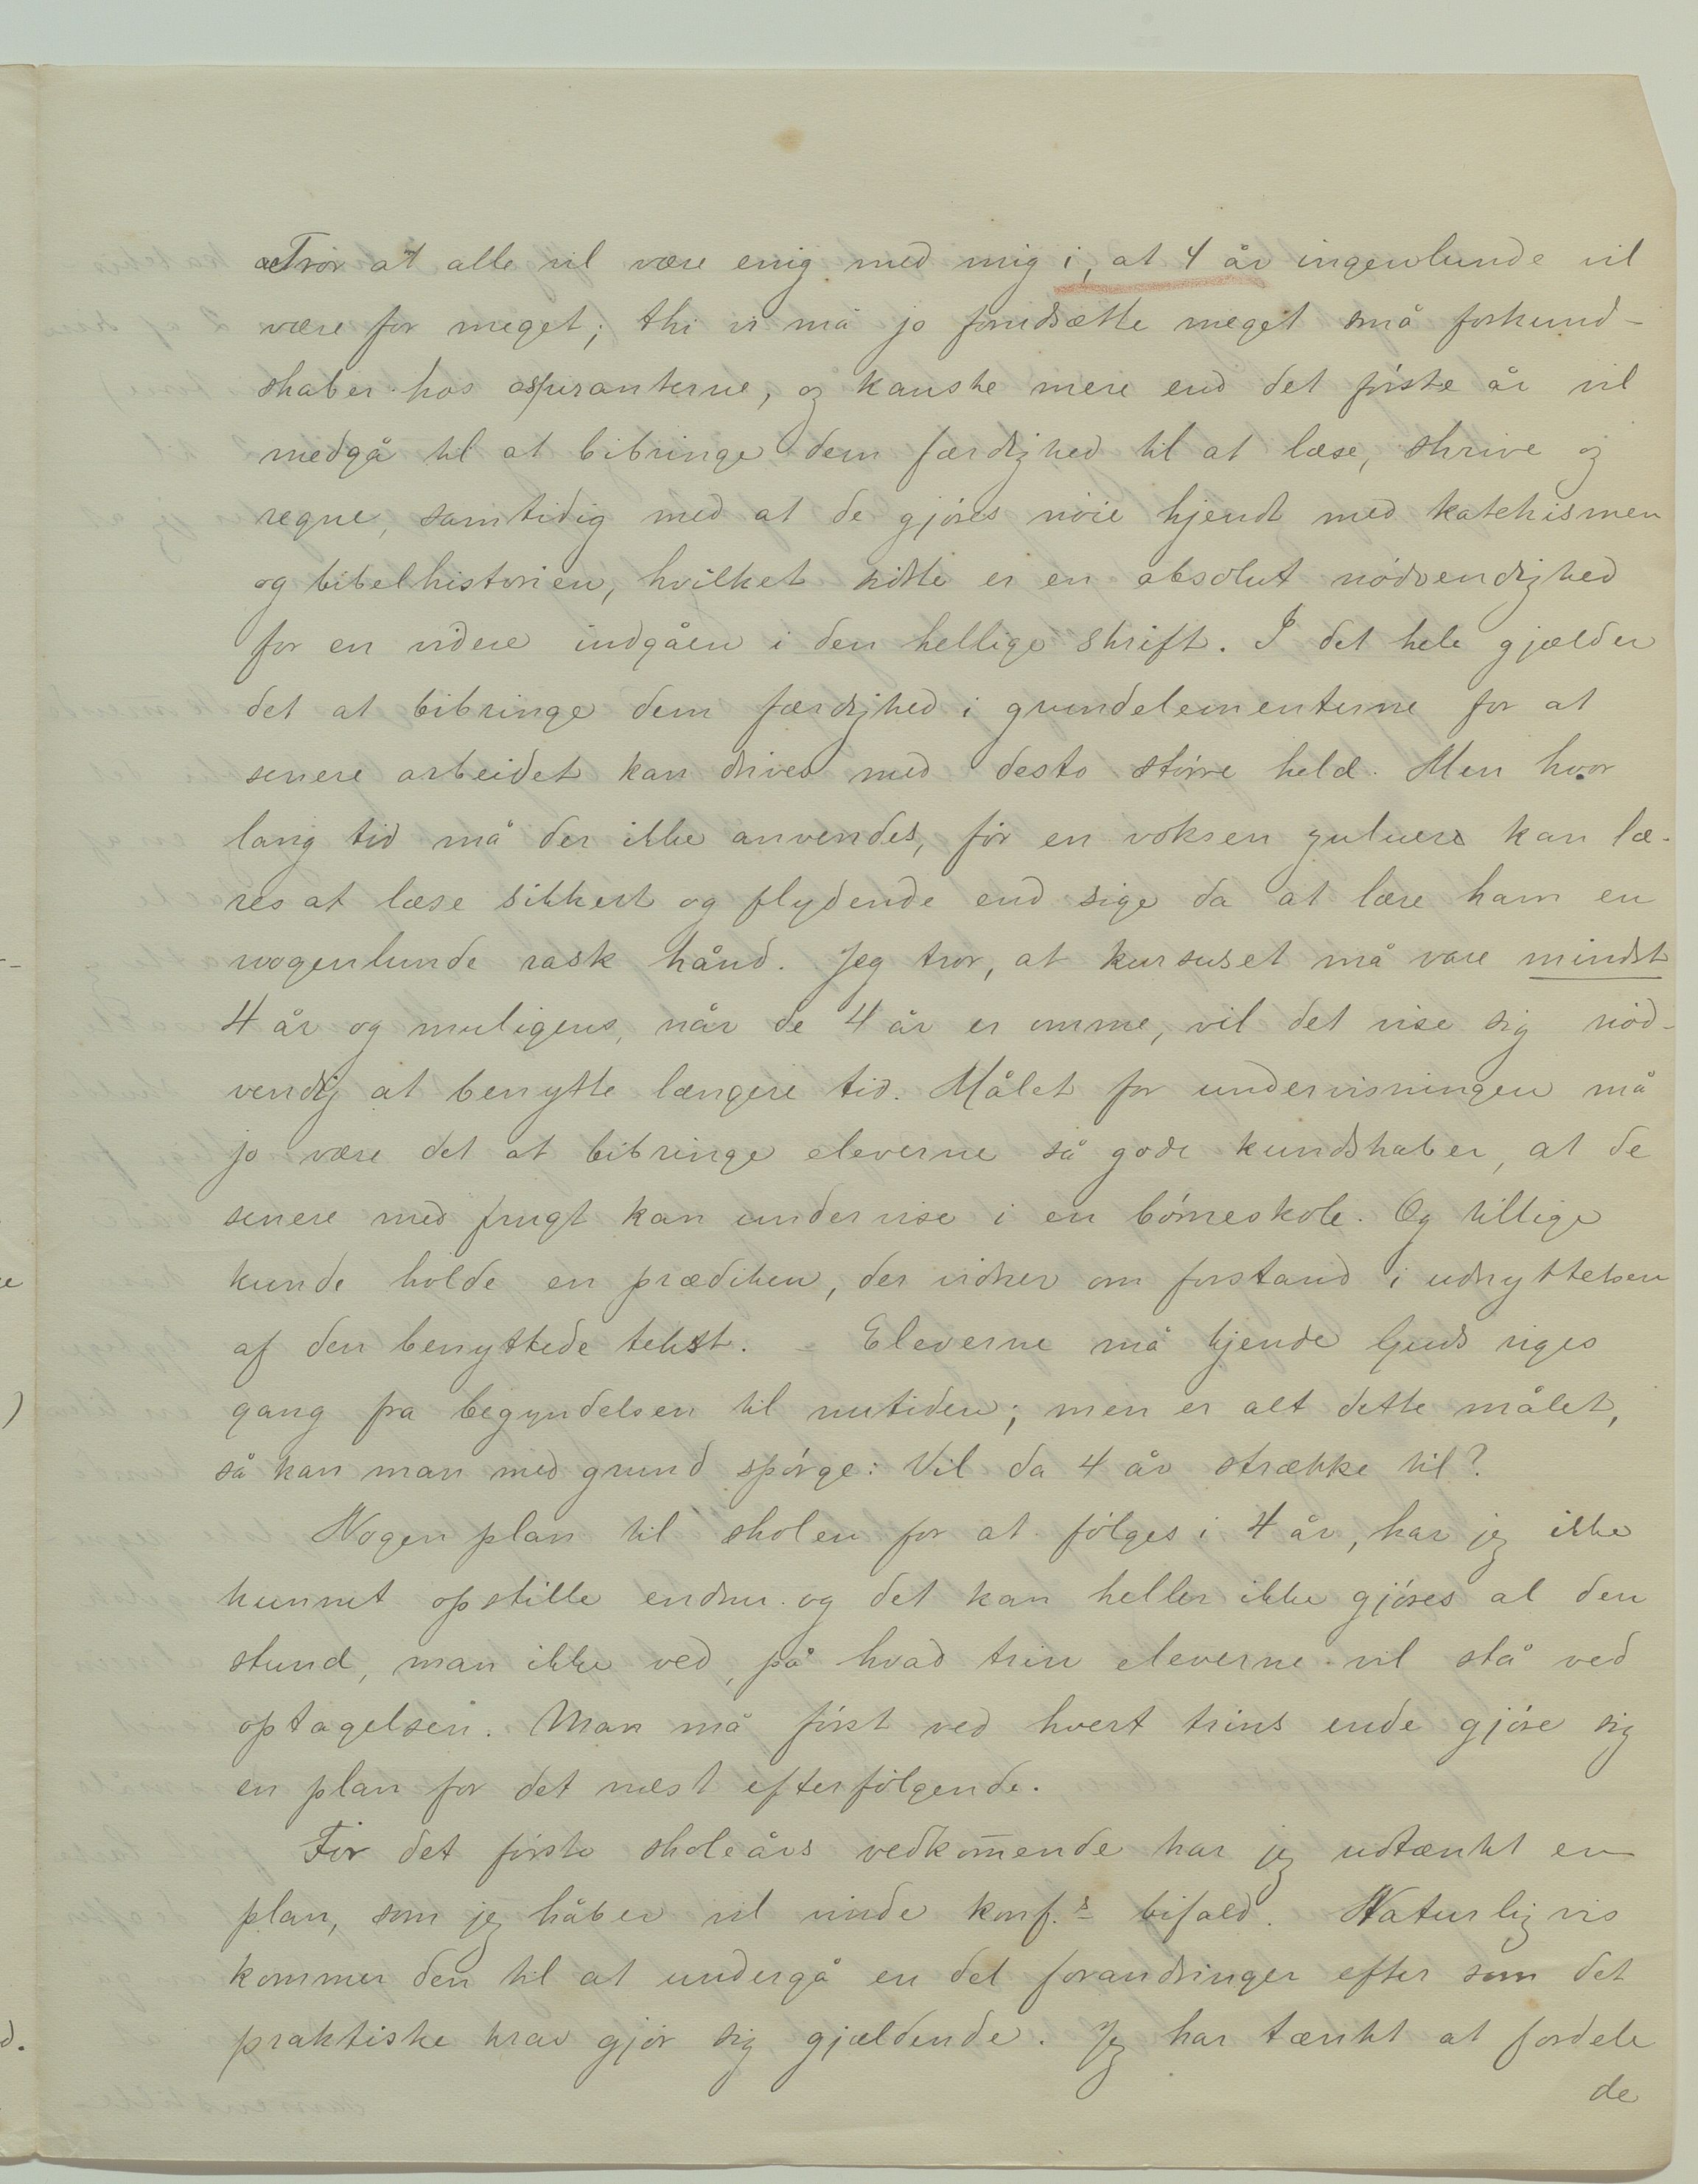 Tror at alle vil være enig med mig i, at 4 år ingenlunde vil
være for meget; thi vi må jo forudsætte meget små forkund-
skaber hos aspiranterne, og kanske mere end det første år vil
medgå til at bibringe dem færdighed til at læse, skrive og
regne, samtidig med at de gjøres nøie kjendt med katekismen
og bibelhistorien, hvilket sidste er en absolut nødvendighed
for en videre indgåen i den hellige skrift. I det hele gjælder
det at bibringe dem færdighed i grundelementerne for at
senere arbeidet kan drives med desto større held. Men hvor
lang tid må der ikke anvendes, før en voksen zuluer kan læ-
res at læse sikkert og flydende end sige da at lære ham en
nogenlunde rask hånd. Jeg tror, at kursuset må vare mindst
4 år og muligens, når de 4 år er omme, vil det vise sig nød-
vendig at benytte længere tid. Målet for undervisningen må
jo være det at bibringe eleverne så gode kundskaber, at de
senere med frugt kan undervise i en børneskole. Og tillige
kunde holde en prædiken, der vidner om forstand i udnyttelsen
af den benyttede tekst. – Eleverne må kjende Guds riges
gang fra begyndelsen til nutiden; men er alt dette målet,
så kan man med grund spørge: Vil da 4 år strække til?
Nogen plan til skolen for at følges i 4 år, har jeg ikke
kunnet opstille endnu og det kan heller ikke gjøres al den
stund, man ikke ved, på hvad trin eleverne vil stå ved
optagelsen. Man må først ved hvert trins ende gjøre sig
en plan for det næst efterfølgende.
For det første skoleårs vedkom̄ende har jeg udtænkt en
plan, som jeg håber vil vinde konf.s bifald. Naturligvis
kommer den til at undergå en del forandringer efter som det
praktiske krav gjør sig gjældende. Jeg har tænkt at fordele
de